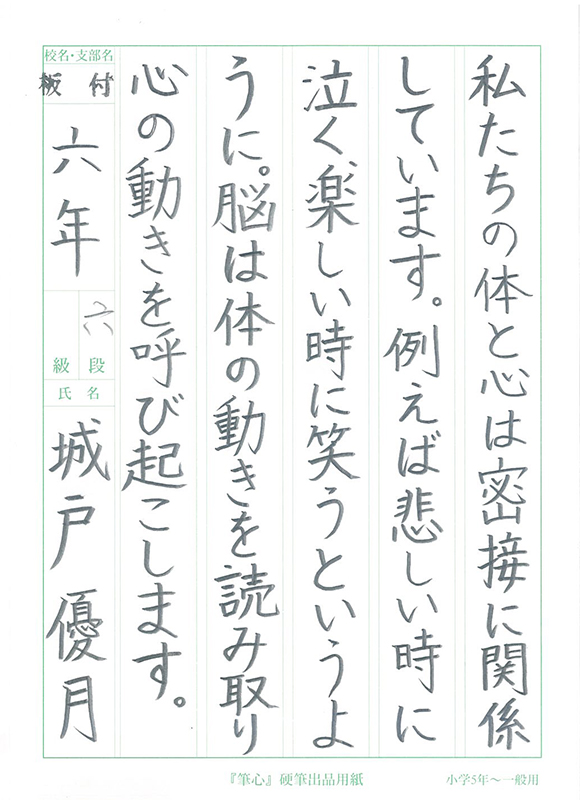 私たちの体と心は密接に関係
しています。例えば悲しい時に
泣く、楽しい時に笑うというよ
うに。脳は体の動きを読み取り
心の動きを呼び起こします。
校名・支部名
板付
六年
六段
級
氏名
城戸優月
『筆心』硬筆出品用紙
小学5年～一般用